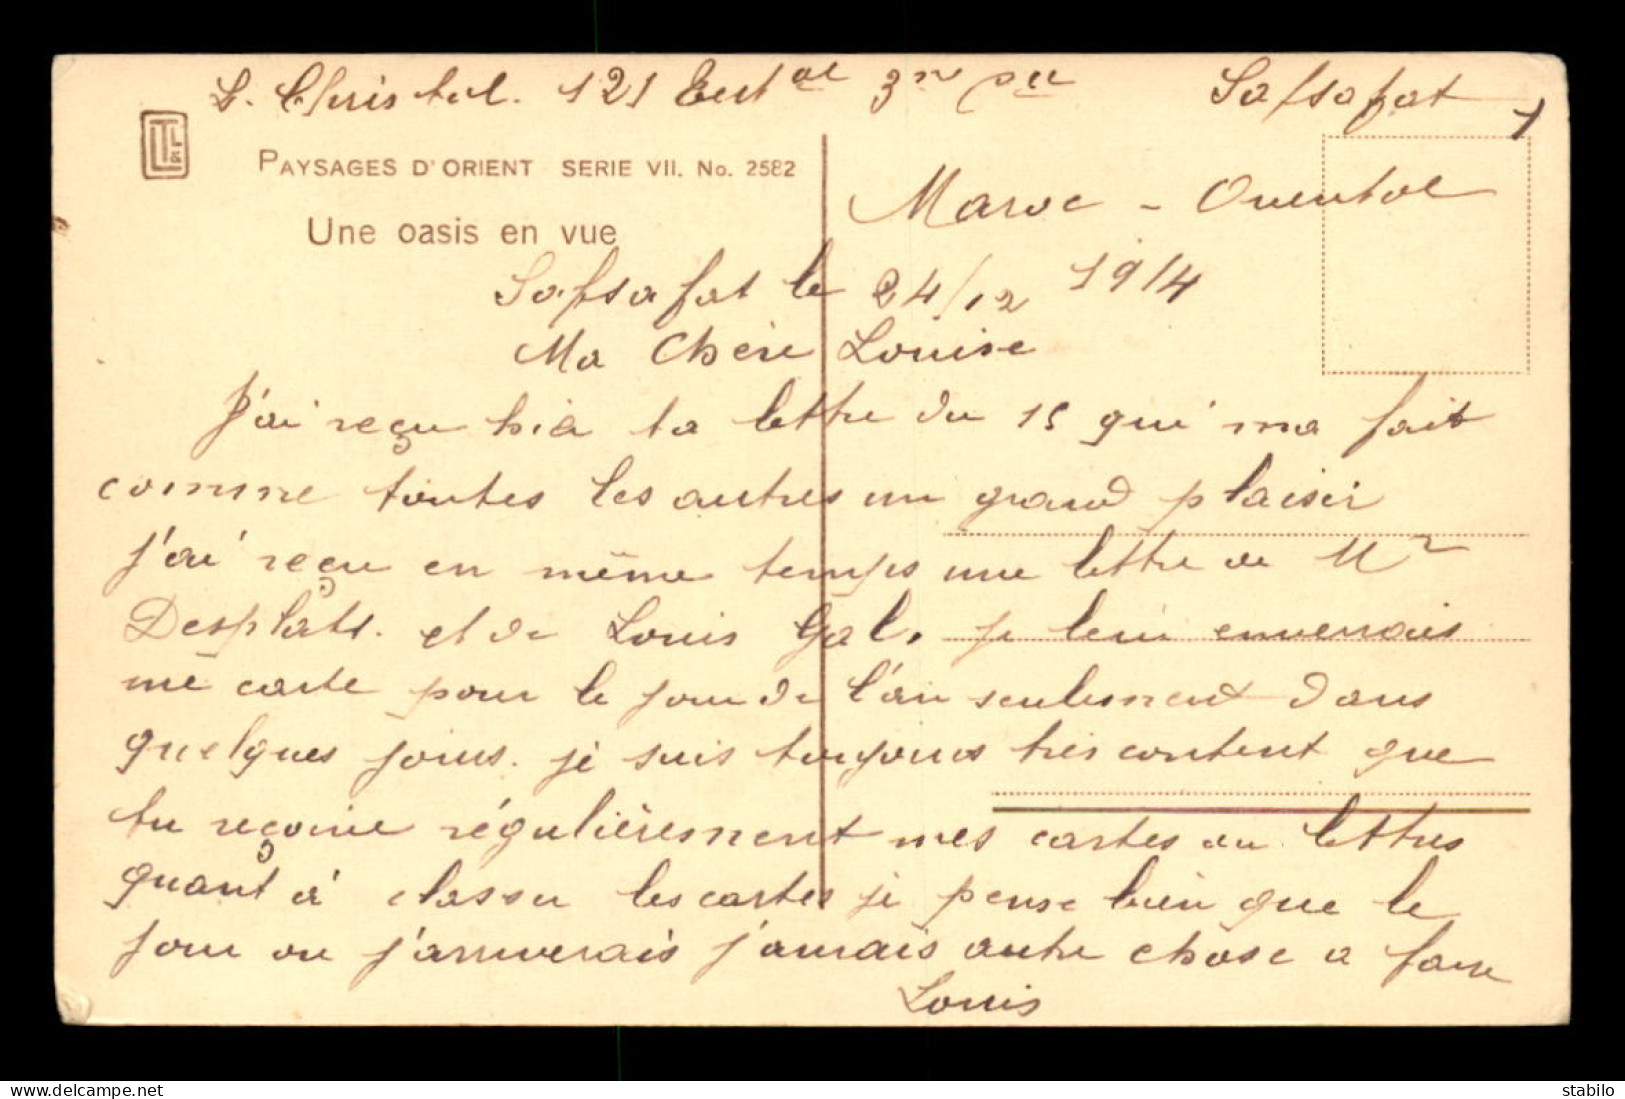 L. Christol. 121 Territ al 3e Cie Safsafat
LTL
PAYSAGES D'ORIENT SERIE VII. No. 2582
Maroc - Oriental
Une oasis en vue
Safsafat le 24/12 1914
Ma Chère Louise
J'ai reçu hier ta lettre du 15 qui ma fait
comme toutes les autres un grand plaisir
j'ai reçu en même temps une lettre de Mr
Desplats. et de Louis Gal. je leur enverrais
une carte pour le jour de l'an seulement dans
quelques jours. je suis toujours très content que
tu reçoive régulièrement mes cartes ou lettres
quant à classer les cartes je pense bien que le
jour ou j'arriverais j'aurais autre chose a faire
Louis
delcampe.net
stabilo